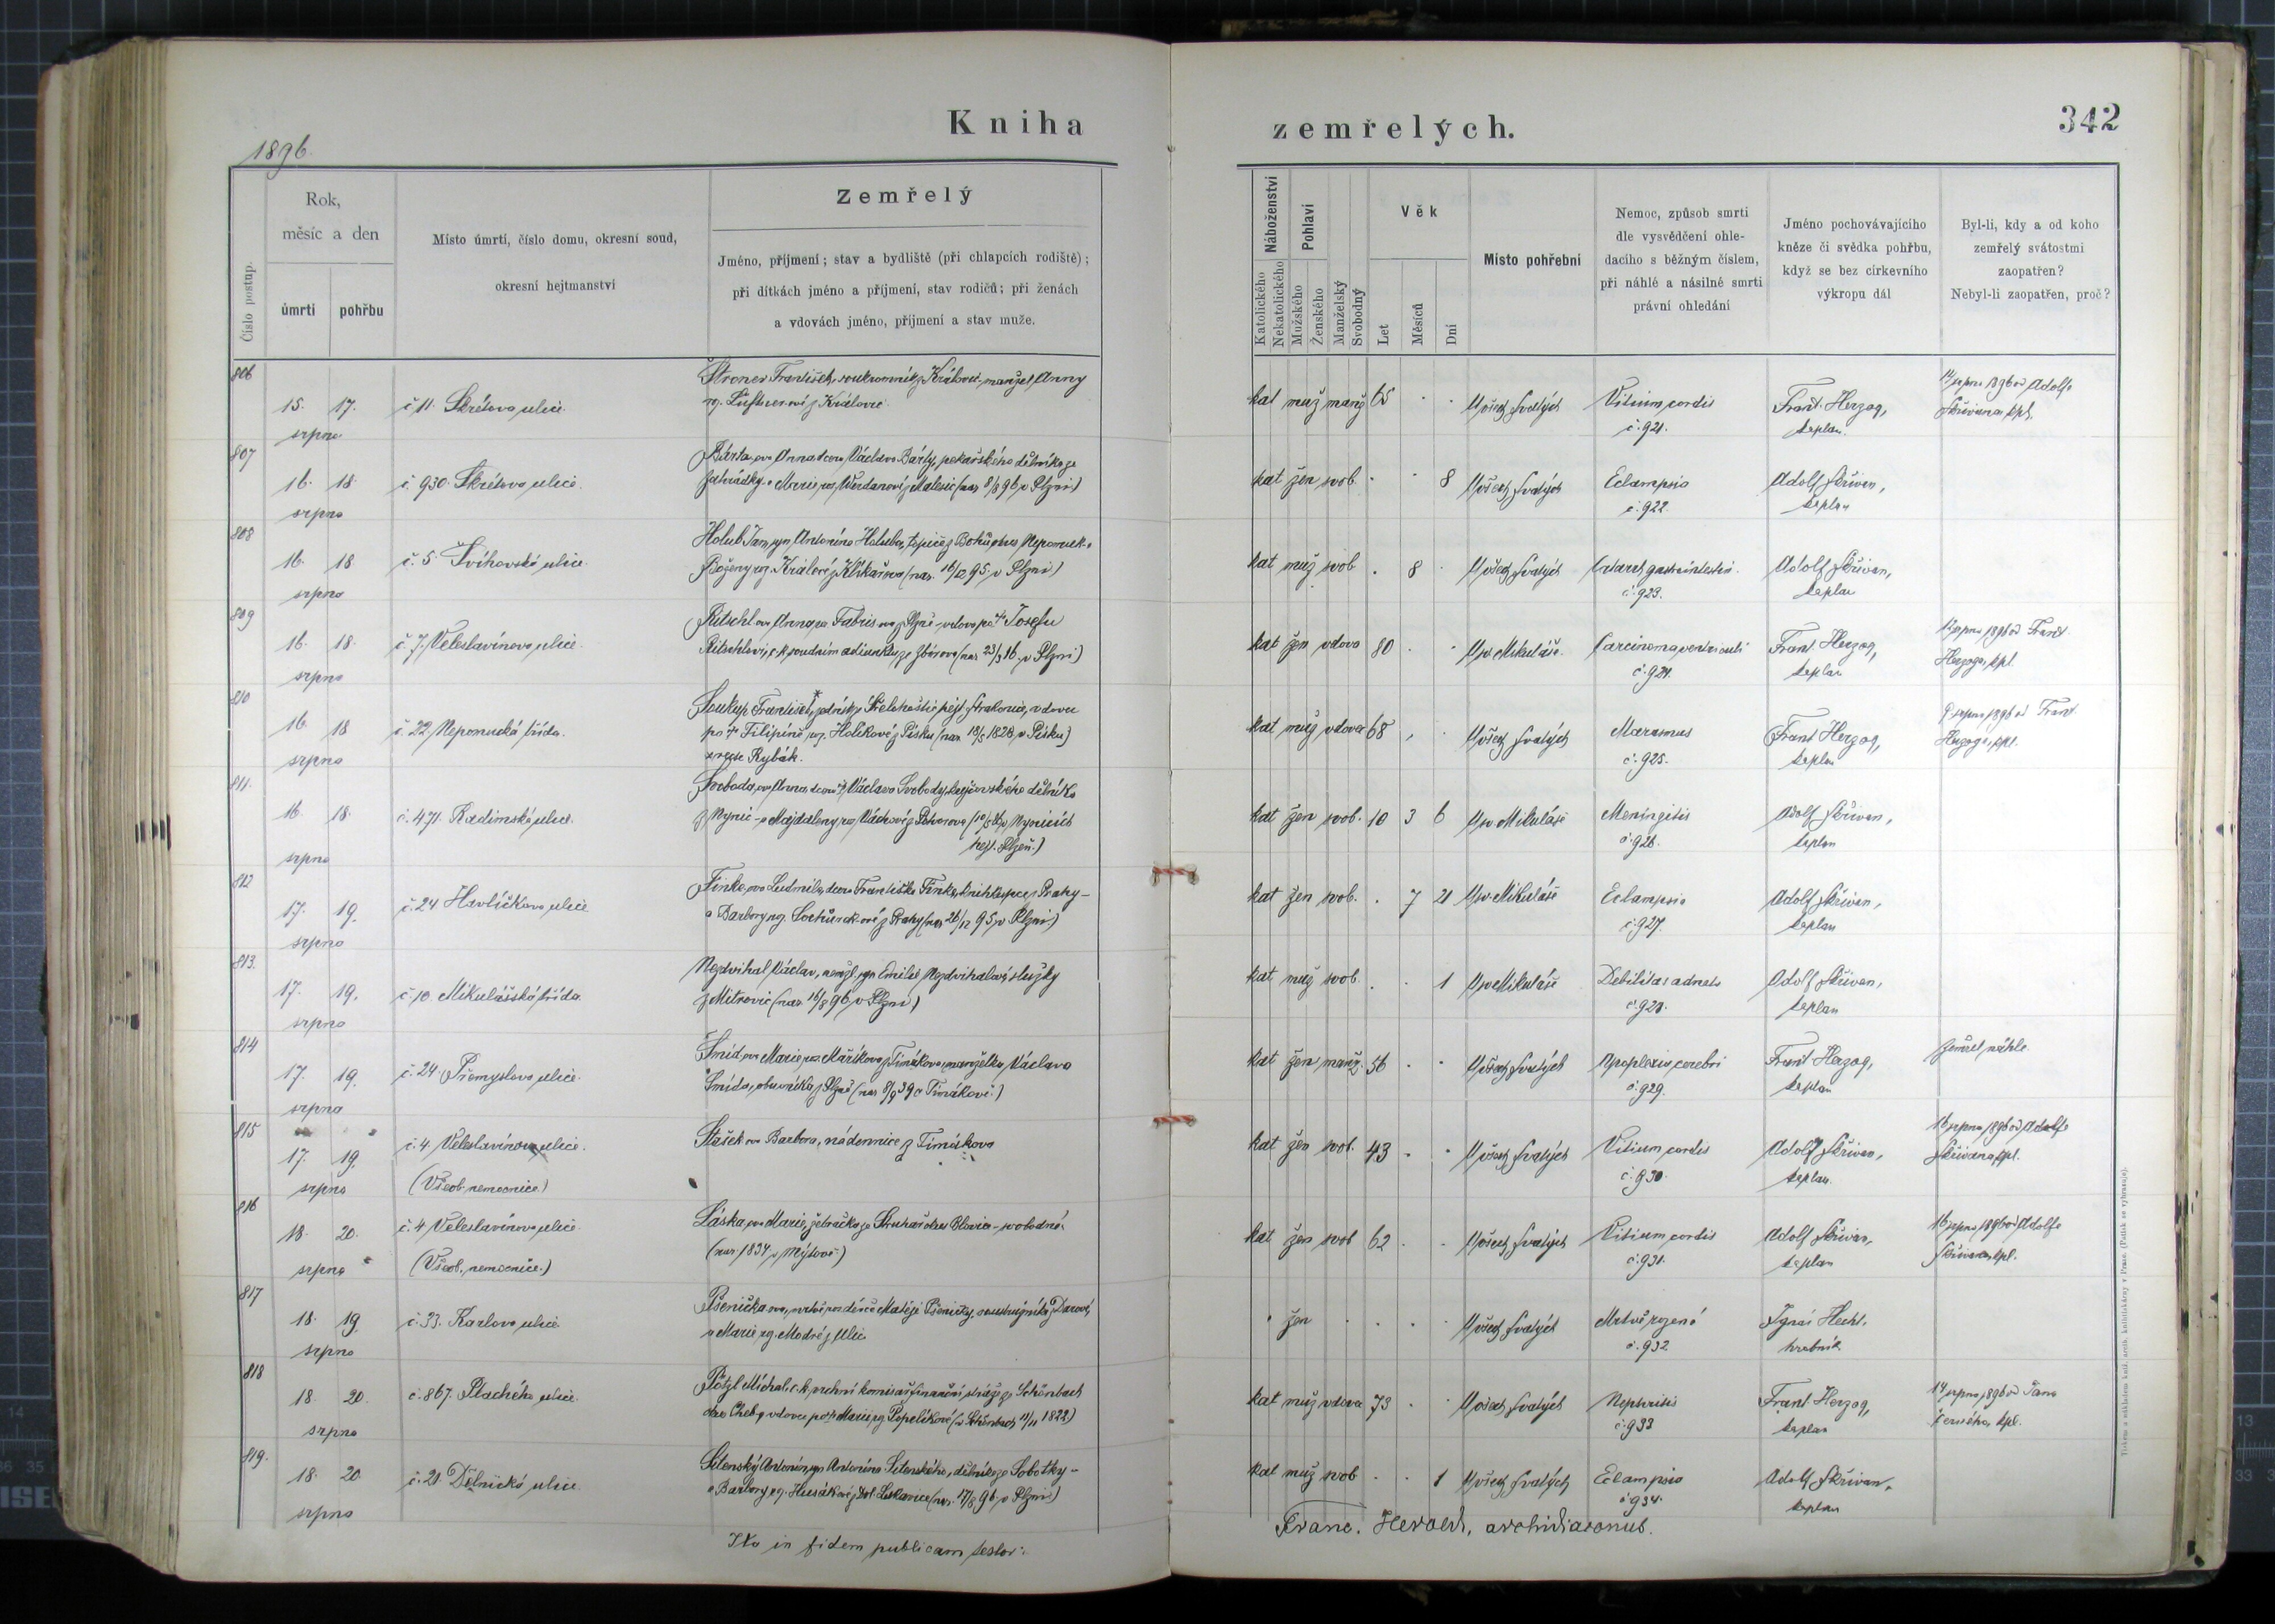 Kniha
1896.
Číslo postup.
Rok,
měsíc a den
úmrtí
pohřbu
Místo úmrtí, číslo domu, okresní soud,
okresní hejtmanství
Zemřelý
Jméno, příjmení; stav a bydliště (při chlapcích rodiště);
při dítkách jméno a příjmení, stav rodičů; při ženách
a vdovách jméno, příjmení a stav muže.
806
15. 17. č 11. Skrétova ulice.
srpna
František, soukromník z Královic, manžel Anny
z Královic
807
16. 18. č. 930. Skrétova ulice.
srpna
Bárta ova Anna dcera Václava Bárty, pekařského dělníka ze
Zahrádky a Marie z Malesic (nar 8/8 96 v Plzni)
808
16. 18. č. 5. Švihovská ulice.
srpna
Holub Jan, syn Antonína Holuba, topiče z okres Nepomuk a
Boženy roz. Králové z (nar. 16/12 95. v Plzni)
809
16. 18. č. 7. Veleslavínova ulice.
srpna
Ritschl ova Anna roz. Fabris ova z Plzně vdova po † Josefu
Ritschlovi, c. k. soudním adjunktu ze Zbirova (nar 23/3 16. v Plzni)
810
16. 18 č. 22. Nepomucká třída.
srpna
Soukup František, hejt. Strakonic, vdovec
po † Filipíně roz. Holíkové z Písku (nar 18/5 1828 v Písku)
recte Rybák.
811.
16. 18. č. 471. Radimská ulice.
srpna
Svoboda ova Anna, dcera † Václava Svobody, dělníka
z Nýřic a Majdaleny roz. Váchové z
hejt. Plzeň.)
812
17. 19. č. 24 Havlíčkova ulice
srpna
Finke, ova Ludmila, dcera Františka Finke, knihkupce z Prahy
a Barbory roz. z Prahy (nar 26/12 95, v Plzni)
813.
17. 19. č 10. Mikulášská třída.
srpna
Nezdvihal Václav, nemžl. syn Emilie Nezdvihalové, služky
z Mitrovic (nar 16/8 96 v Plzni)
814
17. 19. č. 24. Přemyslova ulice.
srpna
Šmíd, ova Marie, roz. Maříkova z Timákova, manželka Václava
Šmída, obuvníka z Plzně (nar 8/9 39 v Timákově)
815
17. 19. č. 4. Veleslavínova ulice.
srpna (Všeob. nemocnice.)
Stašek ova Barbora, nádennice z Timákova
816
18. 20. č. 4 Veleslavínova ulice.
srpna (Všeob. nemocnice.)
Láska, ova Marie, žebračka ze okres Blovice svobodná.
(nar. 1834 v Mýtově)
817
18. 19. č. 33. Karlova ulice
srpna
Pšenička ova, mrtvě roz. děvče Matěje Pšeničky,
a Marie roz. Modré z Ulic
818
18. 20. č. 867. Plachého ulice.
srpna
Pötzl Michal, c. k. vrchní komisař finanční stráže ze Schönbach
okres Cheb, vdovec po † Marii roz. Popelíkové (v Schönbach 11/11 1822)
819.
18. 20. č. 21. Dělnická ulice.
srpna
Antonín, syn Antonína dělníka ze Sobotky
a Barbory roz. Husákové z Dol. Lukavice (nar. 17/8 96. v Plzni)
Ita in fidem publicam testor:
zemřelých.
342
Náboženství
Katolického
Nekatolického
Pohlaví
Mužského
Ženského
Manželský
Svobodný
Věk
Let
Měsíců
Dní
Místo pohřební
Nemoc, způsob smrti
dle vysvědčení ohle-
dacího s běžným číslem,
při náhlé a násilné smrti
právní ohledání
Jméno pochovávajícího
kněze či svědka pohřbu,
když se bez církevního
výkropu dál
Byl-li, kdy a od koho
zemřelý svátostmi
zaopatřen?
Nebyl-li zaopatřen, proč?
kat muž manž 65 U všech Svatých Vitium cordis Frant. Herzog, 14 srpna 1896 od Adolfa
č. 921. kaplan. Skřivana, kpl.
kat žen svob. 8 U všech Svatých Eclampsia Adolf Skřivan,
č. 922. kaplan
kat muž svob 8 U všech Svatých Adolf Skřivan,
č. 923. kaplan
kat žen vdova 80 U sv Mikuláše Carcinoma ventriculi Frant. Herzog, srpna 1896 od Frant.
č. 924. kaplan Herzoga, kpl.
kat muž vdovec 68 U všech Svatých Marasmus Frant Herzog, 9 srpna 1896 od Frant.
č. 925. kaplan Herzoga, kpl.
kat žen svob. 10 3 6 U sv Mikuláše Meningitis Adolf Skřivan,
č. 926. kaplan
kat žen svob. 7 21 U sv Mikuláše Eclampsia Adolf Skřivan,
č. 927. kaplan
kat muž svob. 1 U sv Mikuláše Debilitas adnata Adolf Skřivan,
č. 928. kaplan
kat žen manž. 56 U všech Svatých Apoplexia cerebri Frant Herzog, zemřel náhle
č. 929. kaplan
kat žen svob. 43 U všech Svatých Vitium cordis Adolf Skřivan, 16 srpna 1896 od Adolfa
č. 930. kaplan. Skřivana, kpl.
kat žen svob 62 U všech Svatých Vitium cordis Adolf Skřivan, 16 srpna 1896 od Adolfa
č. 931. kaplan Skřivana, kpl.
žen U všech Svatých Mrtvě rozené Ignác Hecht.
č. 932 hrobník
kat muž vdovec 73 U všech Svatých Nephritis Frant. Herzog, 14 srpna 1896 od Jana
č. 933 kaplan Černého, kpl.
kat muž svob 1 U všech Svatých Eclampsia Adolf Skřivan,
č 934. kaplan
Franc. Herold, archidiaconus.